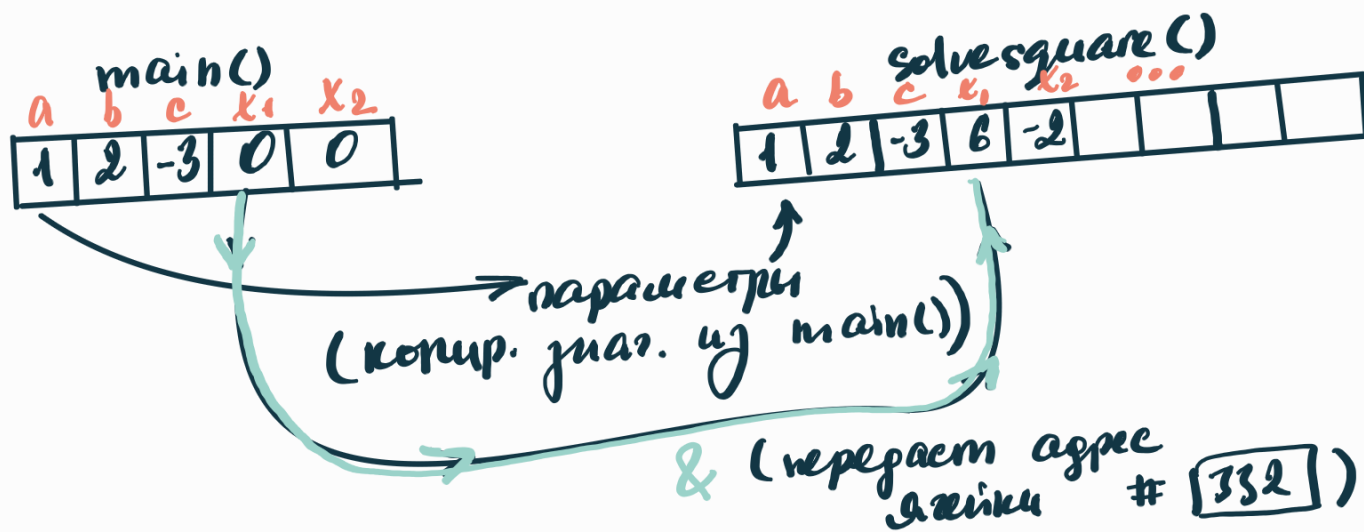 main()
a b c x₁ x₂
1 2 -3 0 0
solvesquare()
a b c x₁ x₂ ...
1 2 -3 6 -2
параметры
(копир. знач. из main())
& (передаст адрес
ячейки # 332)